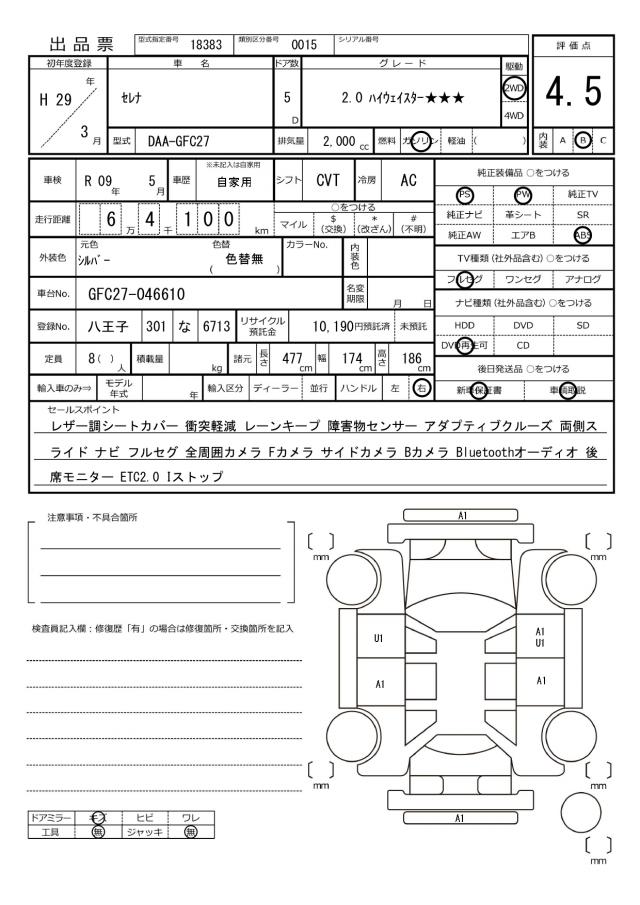 出品票 型式指定番号 18383 類別区分番号 0015 シリアル番号
評価点
初年度登録 車名 ドア数 グレード 駆動
H 29 年 3 月 セレナ 5 D 2.0 ハイウェイスター★★★ 2WD 4WD
4.5
型式 DAA-GFC27 排気量 2,000 cc 燃料 ガソリン 軽油 ( )
内装 A B C
車検 R 09 年 5 月 車歴 ※未記入は自家用 自家用 シフト CVT 冷房 AC
純正装備品 ○をつける
PS PW 純正TV
純正ナビ 革シート SR
純正AW エアB ABS
走行距離 6 万 4 千 1 0 0 km
○をつける
マイル $ (交換) * (改ざん) # (不明)
外装色 元色 シルバー 色替 ( 色替無 ) カラーNo. 内装色
TV種類 (社外品含む) ○をつける
フルセグ ワンセグ アナログ
車台No. GFC27-046610 名変期限 月 日
ナビ種類 (社外品含む) ○をつける
登録No. 八王子 301 な 6713 リサイクル預託金 10,190円預託済 未預託
HDD DVD SD
DVD再生可 CD
定員 8 ( ) 人 積載量 kg 諸元 長さ 477 cm 幅 174 cm 高さ 186 cm
後日発送品 ○をつける
輸入車のみ⇒ モデル年式 年 輸入区分 ディーラー 並行 ハンドル 左 右
新車保証書 車輌取説
セールスポイント
レザー調シートカバー 衝突軽減 レーンキープ 障害物センサー アダプティブクルーズ 両側ス
ライド ナビ フルセグ 全周囲カメラ Fカメラ サイドカメラ Bカメラ Bluetoothオーディオ 後
席モニター ETC2.0 Iストップ
注意事項・不具合箇所
A1
mm
mm
検査員記入欄：修復歴「有」の場合は修復箇所・交換箇所を記入
U1
A1
U1
A1
A1
mm
mm
A1
mm
ドアミラー キズ ヒビ ワレ
工具 無 ジャッキ 無